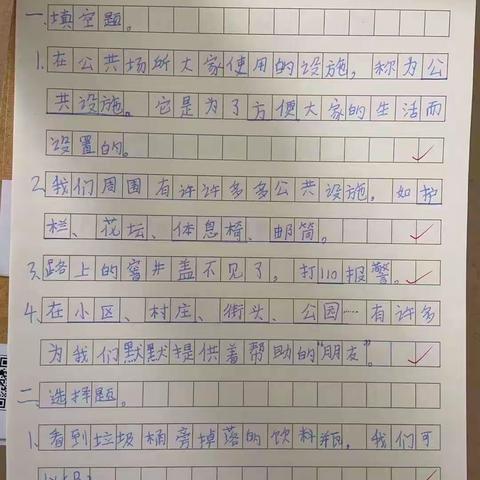 一.填空题。
1.在公共场所大家使用的设施，称为公
共设施。它是为了方便大家的生活而
设置的。
2.我们周围有许许多多公共设施。如护
栏、花坛、体息椅、邮筒。
3.路上的窨井盖不见了，打110报警。
4.在小区、村庄、街头、公园…有许多
为我们默默提供着帮助的"朋友"。
二.选择题。
1.看到垃圾桶旁掉落的饮料瓶，我们可